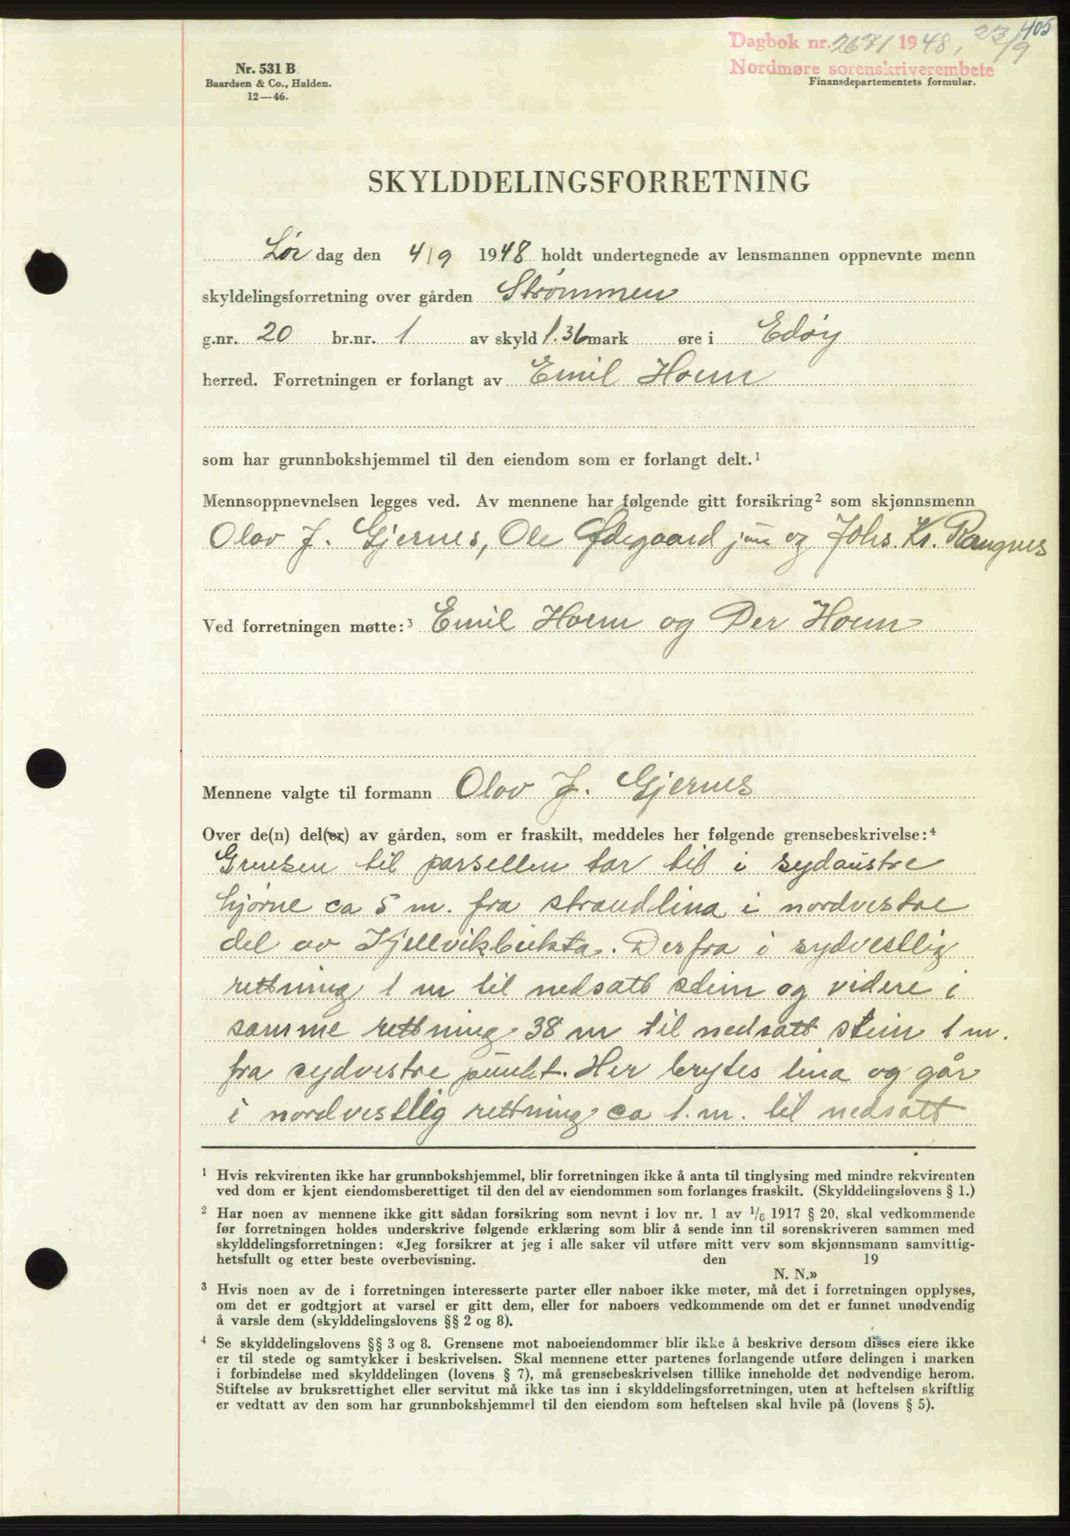 405
Dagbok nr. 2621 1948, 23/9
Nordmøre sorenskriverembete
Nr. 531 B
Baardsen & Co., Halden.
12—46.
Finansdepartementets formular.
SKYLDDELINGSFORRETNING
Lør dag den 4/9 1948 holdt undertegnede av lensmannen oppnevnte menn
skyldelingsforretning over gården Strømmen
g.nr. 20 br.nr. 1 av skyld 1.36 mark øre i Edøy
herred. Forretningen er forlangt av Emil Hoem
som har grunnbokshjemmel til den eiendom som er forlangt delt.¹
Mennsoppnevnelsen legges ved. Av mennene har følgende gitt forsikring² som skjønnsmenn
Olav J. Gjernes, Ole Ødegaard jun og Johs. Kr. Raugnes
Ved forretningen møtte:³ Emil Hoem og Per Hoem
Mennene valgte til formann Olav J. Gjernes
Over de(n) del(er) av gården, som er fraskilt, meddeles her følgende grensebeskrivelse:⁴
Grensen til parsellen tar til i sydaustre
hjørne ca 5 m. fra strandlina i nordvestre
del av Kjellvikbukta. Derfra i sydvestlig
rettning 1 m til nedsatt stein og videre i
samme rettning 38 m til nedsatt stein 1 m.
fra sydvestre punkt. Her brytes lina og går
i nordvestlig rettning ca 1. m. til nedsatt
¹ Hvis rekvirenten ikke har grunnbokshjemmel, blir forretningen ikke å anta til tinglysing med mindre rekvirenten
ved dom er kjent eiendomsberettiget til den del av eiendommen som forlanges fraskilt. (Skylddelingslovens § 1.)
² Har noen av mennene ikke gitt sådan forsikring som nevnt i lov nr. 1 av 1/6 1917 § 20, skal vedkommende
før forretningen holdes underskrive følgende erklæring som blir å sende inn til sorenskriveren sammen med
skylddelingsforretningen: «Jeg forsikrer at jeg i alle saker vil utføre mitt verv som skjønnsmann samvittig-
hetsfullt og etter beste overbevisning. den 19
N. N.»
³ Hvis noen av de i forretningen interesserte parter eller naboer ikke møter, må det i forretningen opplyses,
om det er godtgjort at varsel er gitt dem, eller for naboers vedkommende om det er funnet unødvendig
å varsle dem (skylddelingslovens §§ 2 og 8).
⁴ Se skylddelingslovens §§ 3 og 8. Grensene mot naboeiendommer blir ikke å beskrive dersom disses eiere ikke
er til stede og samtykker i beskrivelsen. Skal mennene etter partenes forlangende utføre delingen i marken
i forbindelse med skylddelingen (lovens § 7), må grensebeskrivelsen tillike inneholde det nødvendige herom.
Stiftelse av bruksrettighet eller servitut må ikke tas inn i skylddelingsforretningen, uten at heftelsen skriftlig
er vedtatt av den som har grunnbokshjemmel til den eiendom som heftelsen skal hvile på (lovens § 5).